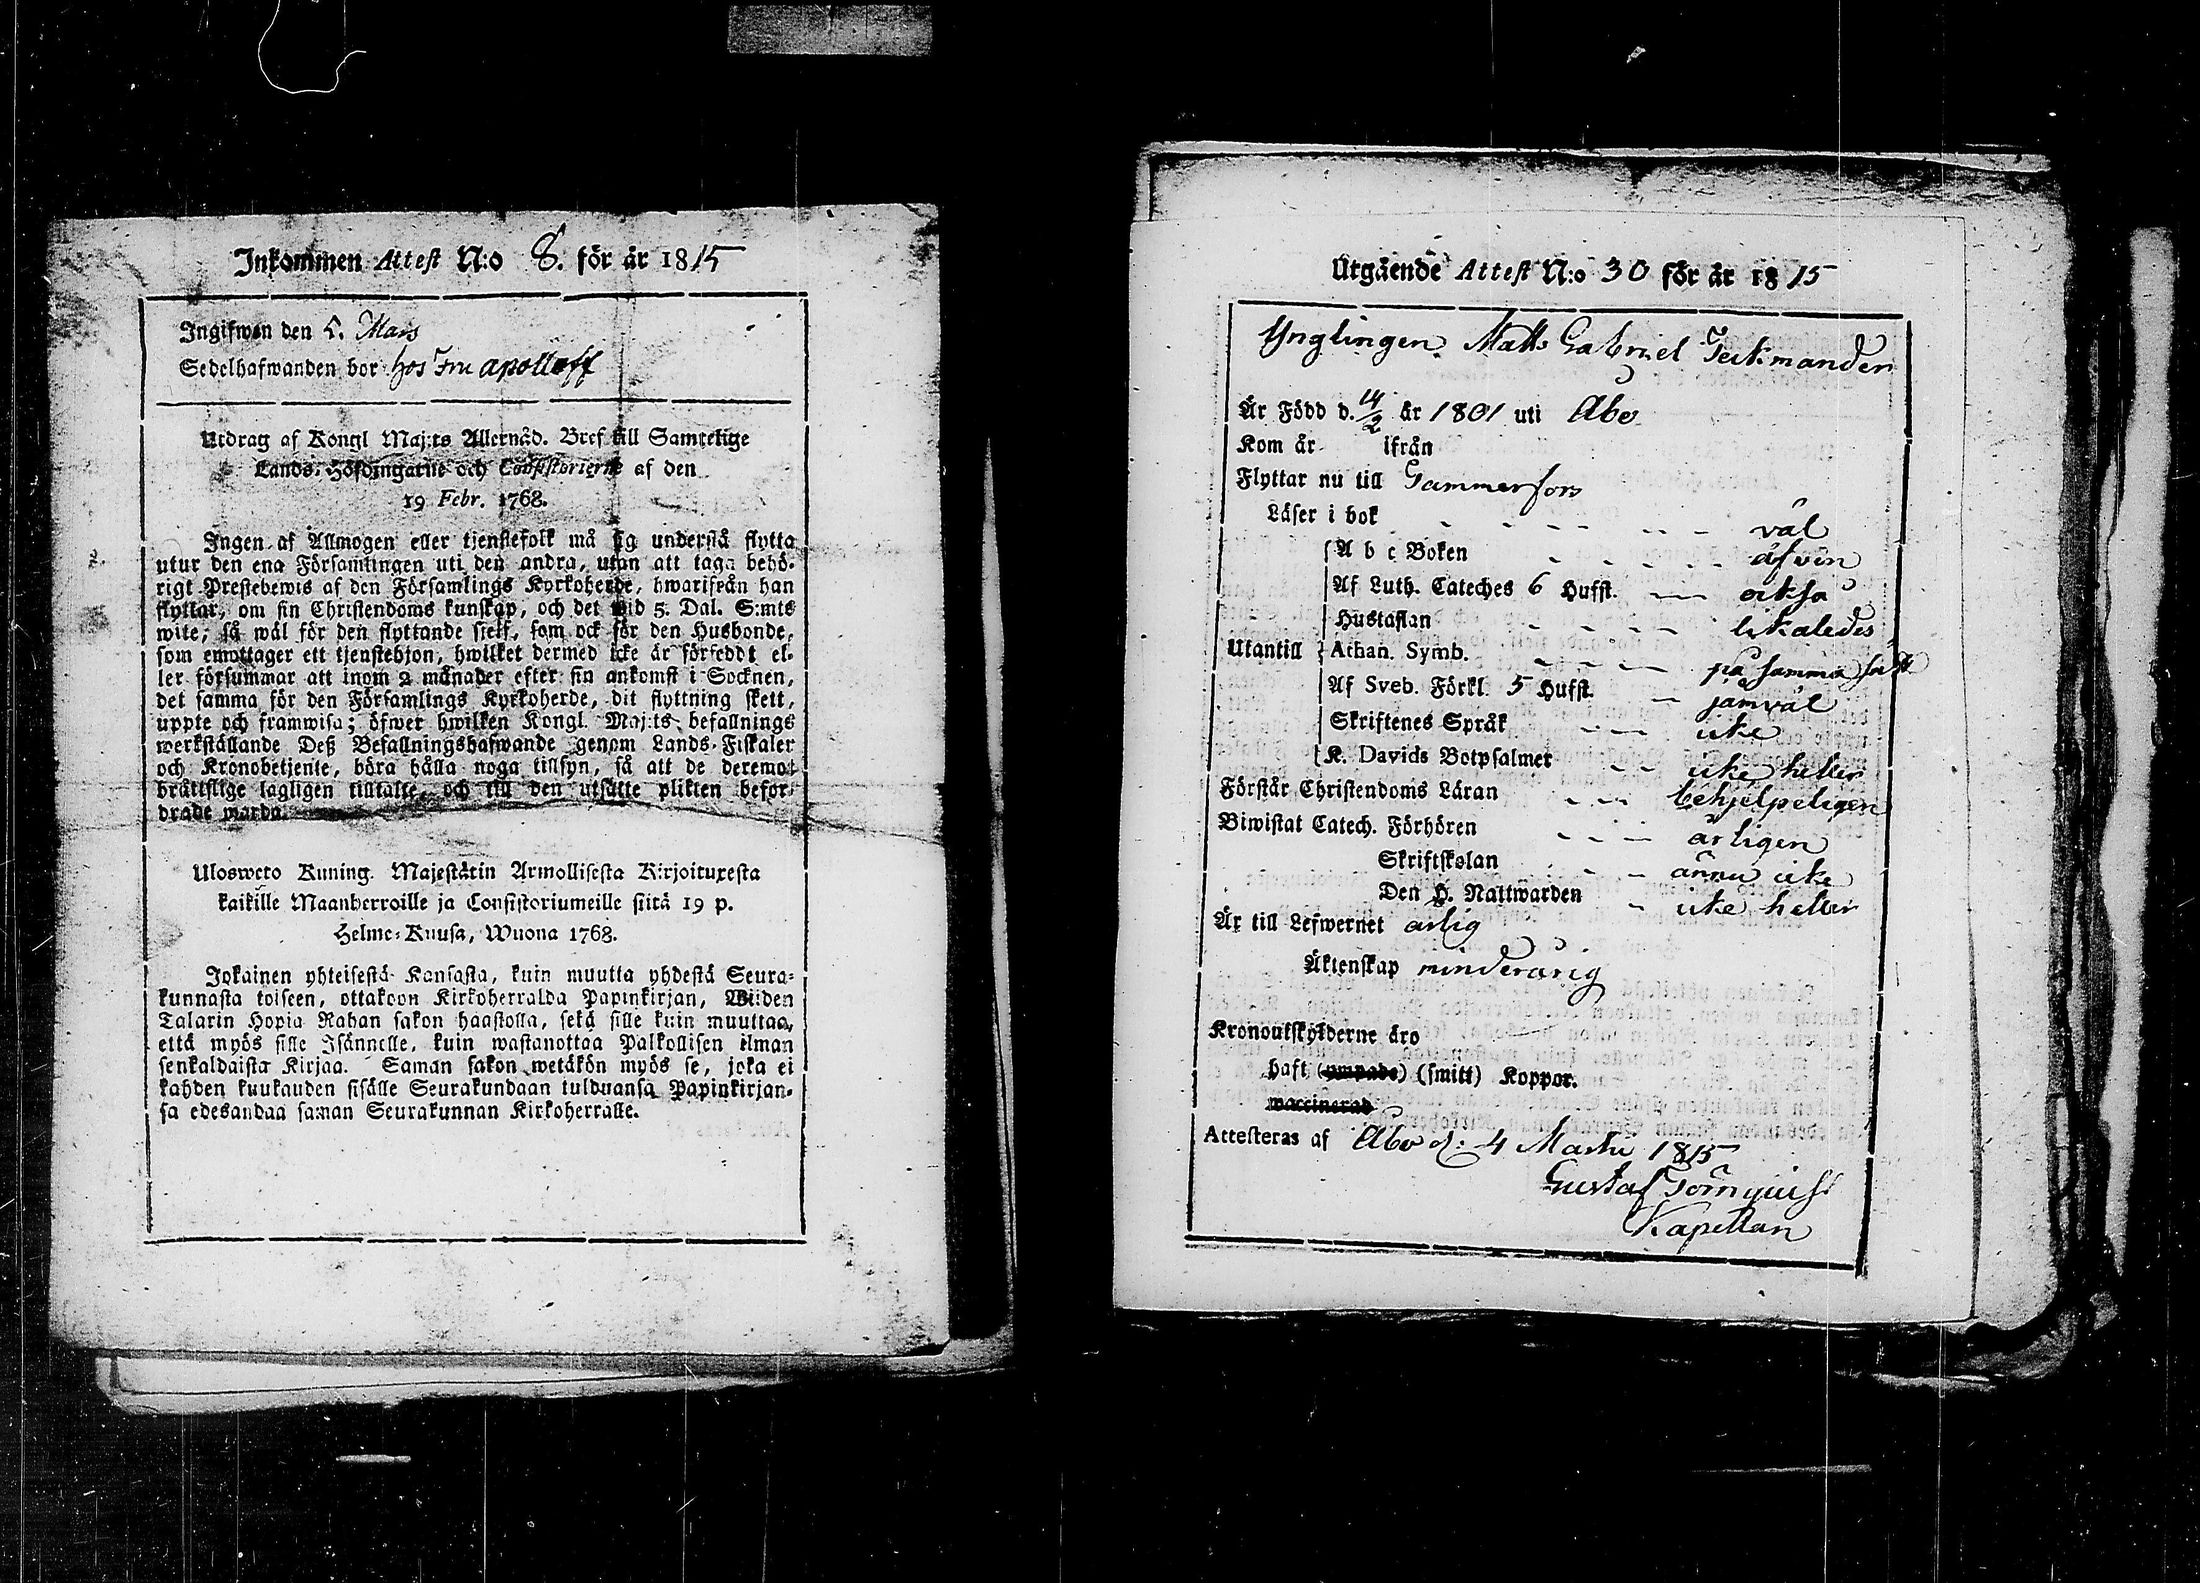 Inkommen Attest N:o 8. för år 1815
Ingifwen den 5. Mars
Sedelhafwanden bor hos Fru Apolloff
Utdrag af Kongl Maj:ts Allernåd. Bref till Samtelige
Lands-Höfdingarne och Consistorierne af den
19 Febr. 1768.
Ingen af Allmogen eller tjenstefolk må sig understå flytta
utur den ena Församlingen uti den andra, utan att taga behö-
rigt Prestebewis af den Församlings Kyrkoherde, hwarifrån han
flyttar, om sin Christendoms kunskap, och det wid 5. Dal. S:mts
wite, så wäl för den flyttande sielf, som ock för den Husbonde,
som emottager ett tjenstehjon, hwilket dermed icke är förseddt el-
ler försummar att inom 2 månader efter sin ankomst i Socknen,
det samma för den Församlings Kyrkoherde, dit flyttning skett,
uppte och framwisa; öfwer hwilken Kongl. Maj:ts befallnings
werkställande Deß Befallningshafwande genom Lands-Fiskaler
och Kronobetjente, böra hålla noga tillsyn, så att de deremot
bråttslige lagligen tilltalte, och till den utsatte plikten befor-
drade warda.
Ulosweto Kuning. Majestätin Armollisesta Kirjoituxesta
kaikille Maanherroille ja Consistoriumeille siitä 19 p.
Helme-Kuusa, Wuona 1768.
Jokainen yhteisestä Kansasta, kuin muutta yhdestä Seura-
kunnasta toiseen, ottakoon Kirkoherralda Papinkirjan, Wiiden
Talarin Hopia Rahan sakon haastolla, sekä sille kuin muuttaa,
että myös sille Isännelle, kuin wastanottaa Palkollisen ilman
senkaldaista Kirjaa. Saman sakon wetäkön myös se, joka ei
kahden kuukauden sisälle Seurakundaan tulduansa Papinkirjan-
sa edesandaa saman Seurakunnan Kirkoherralle.
Utgående Attest N:o 30 för år 1815
Ynglingen Matts Gabriel Teckmander
Är Född d. 14/2 år 1801 uti Åbo
Kom år ifrån
Flyttar nu till Tammerfors
Läser i bok - - - - väl
A b c Boken - - - - äfven
Af Luth. Cateches 6 Hufst. - - också
Hustaflan - - - - likaledes
Utantill Athan. Symb. - - - - på samma sätt
Af Sveb. Förkl. 5 Hufst. - jämväl
Skriftenes Språk - - - icke
K. Davids Botpsalmer - - icke heller
Förstår Christendoms Läran - - - behjelpeligen
Biwistat Catech. Förhören - - - - årligen
Skriftskolan - - - ännu icke
Den H. Nattwarden - icke heller
Är till Lefwernet ärlig
Äktenskap minderårig
Kronoutskylderne äro
haft (ympade) (smitt) Koppor.
waccinerad
Attesteras af Åbo d: 4 Martii 1815
Gustaf Törnquist
Kapellan